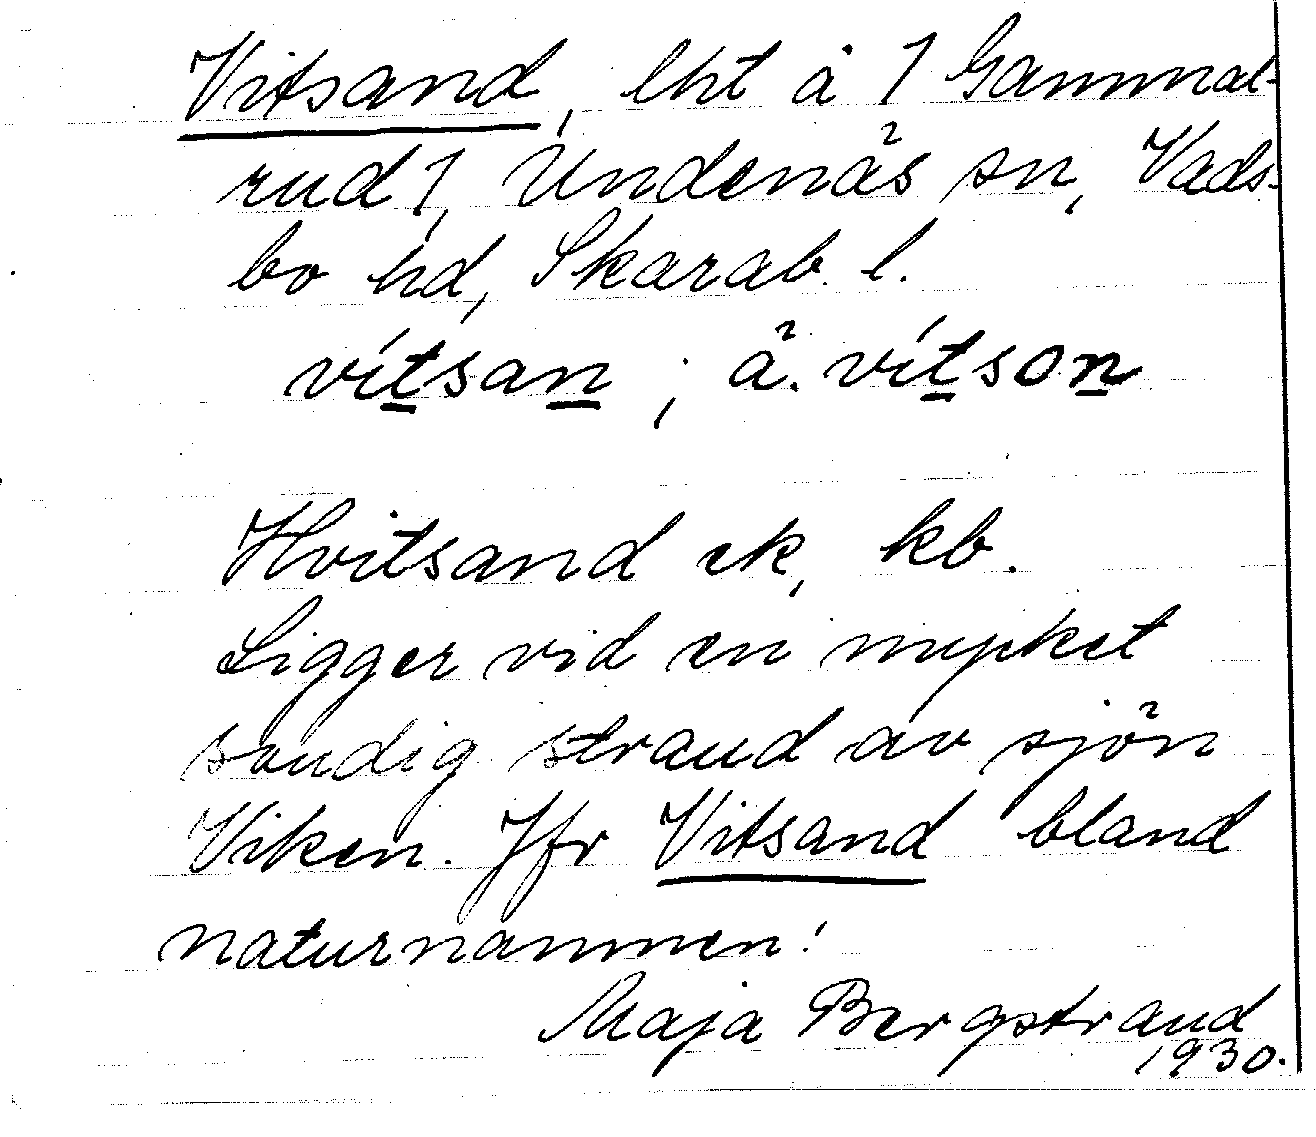 Vitsand, lht å 1 Gammal-
rud 1, Undenäs sn, Vads-
bo hd, Skarab. l.
vítsan ; ä. vítson
Hvitsand ek, kb.
Ligger vid en mycket
sandig strand av sjön
Viken. Jfr Vitsand bland
naturnamnen!
Maja Bergstrand
1930.